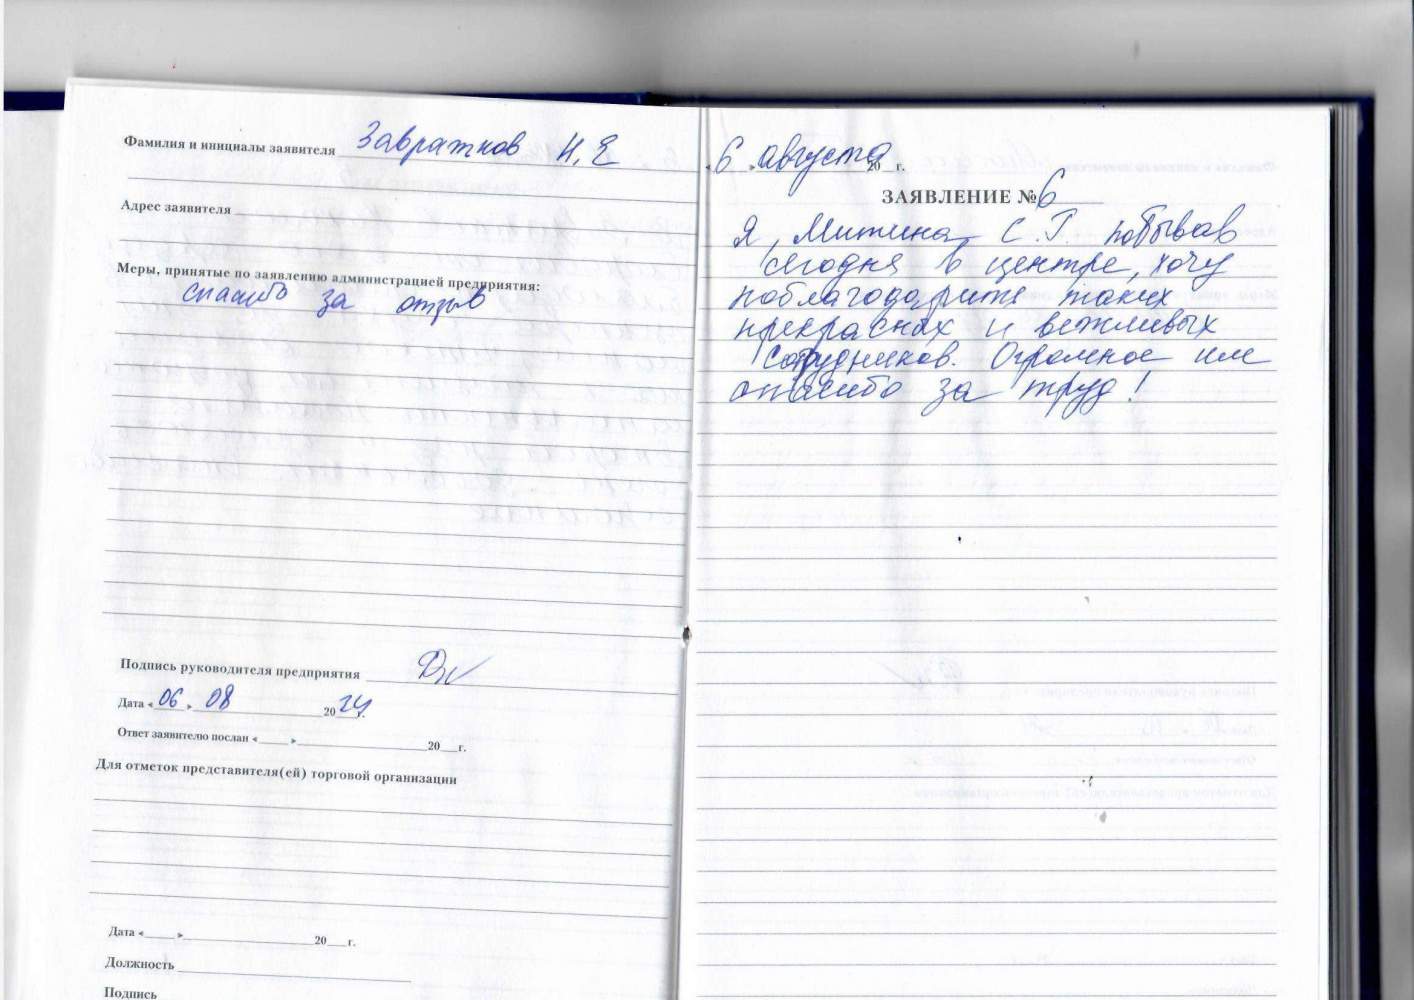 Фамилия и инициалы заявителя Завражнов Н.Е
Адрес заявителя
Меры, принятые по заявлению администрацией предприятия:
спасибо за отзыв
Подпись руководителя предприятия
Дата «06» 08 2024 г.
Ответ заявителю послан «____» ____ 20__ г.
Для отметок представителя(ей) торговой организации
Дата «____» ____ 20__ г.
Должность
Подпись
«6» августа 20__ г.
ЗАЯВЛЕНИЕ № 6
Я, Митина С.Г. побывав
сегодня в центре, хочу
поблагодарить таких
прекрасных и вежливых
сотрудников. Огромное им
спасибо за труд!